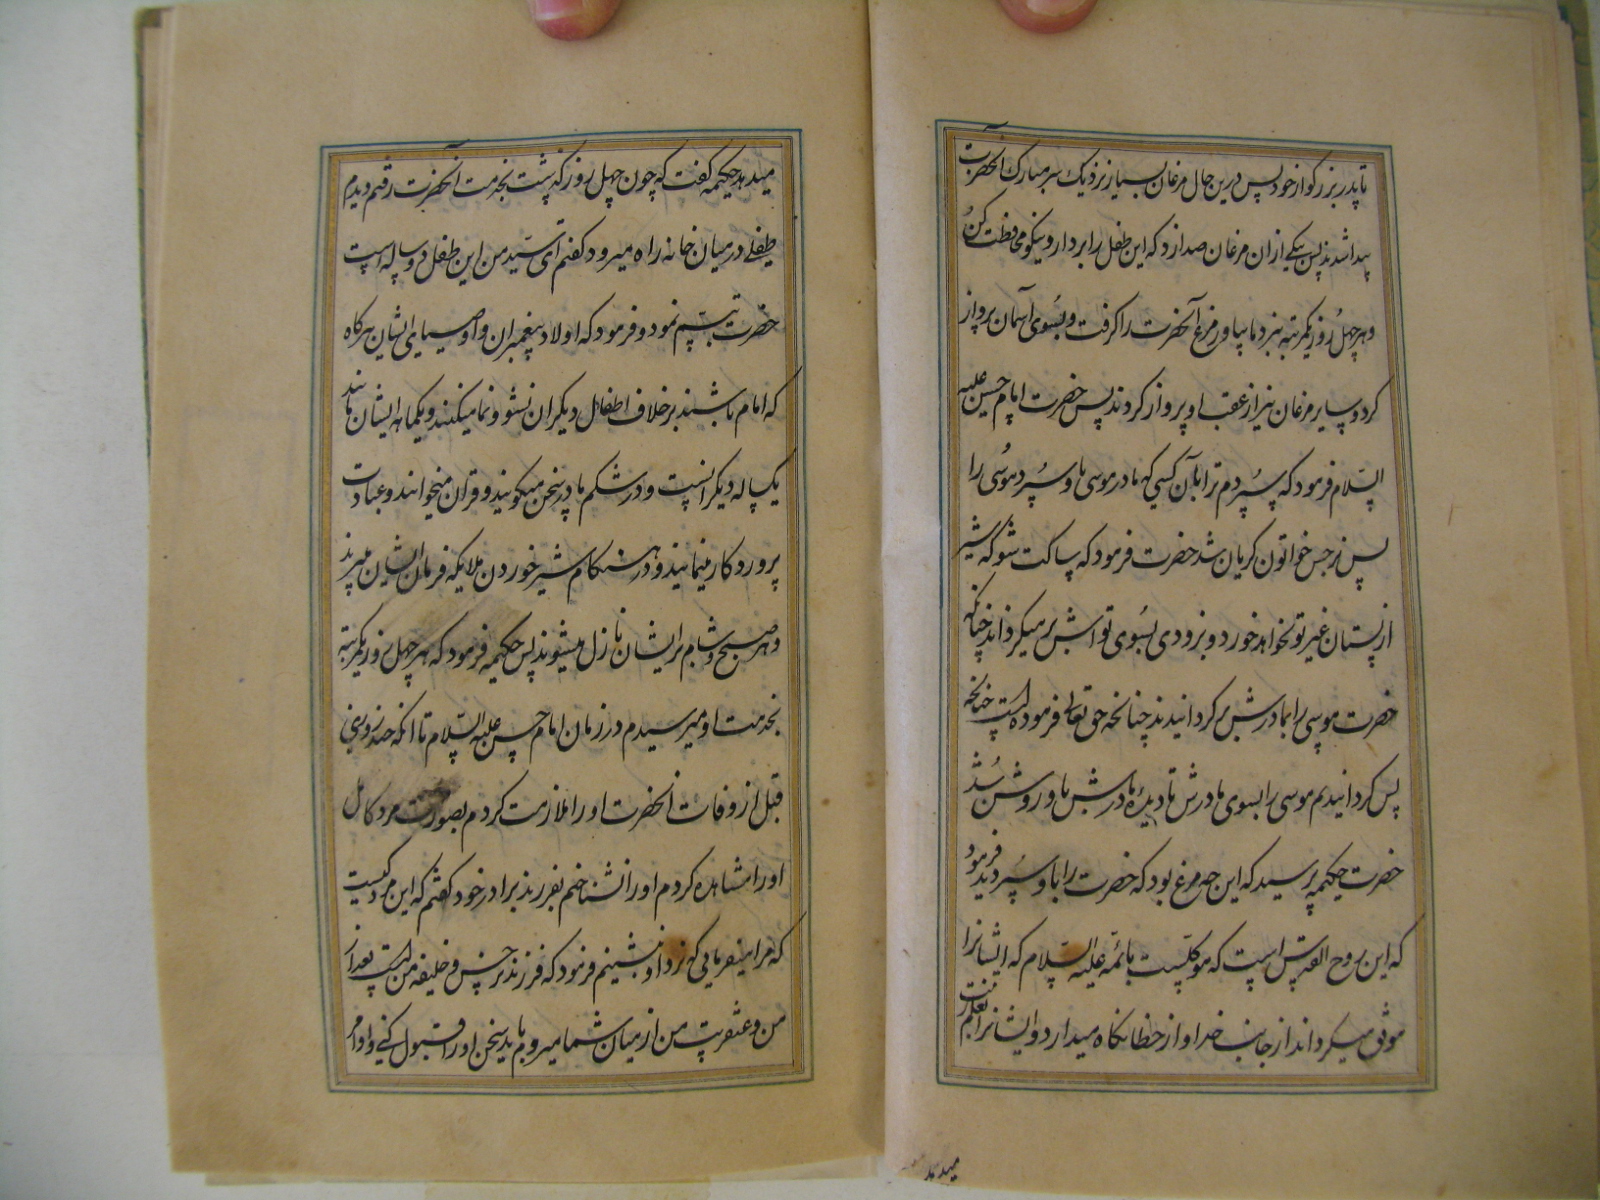 تا پدر بزرگوار خود پس درین حال مرغان بسیار نزدیک سر مبارک آنحضرت
پیدا شدند پس یکی از ان مرغان صدا زد که این طفل را بردار و نیکو محافظت کن
و هر چهل روز یکمرتبه بنزد ما بیاور مرغ آنحضرت را گرفت و بسوی آسمان پرواز
کرد و سایر مرغان نیز از عقب او پرواز کردند پس حضرت امام حسن علیه
السلام فرمود که سپردم ترا بآن کسی که مادر موسی باو سپرد موسی را
پس نرجس خواتون گریان شد حضرت فرمود که ساکت شو که شیر
از پستان غیر تو نخواهد خورد و بزودی بسوی تو اش بر میگرداند چنانکه
حضرت موسی را بمادرش برگردانیدند چنانچه حق تعالی فرموده است چنانچه
پس گردانیدیم موسی را بسوی مادرش تا دیده مادرش باو روشن شد
حضرت حکیمه پرسید که این چه مرغ بود که حضرت را باو سپردید فرمود
که این روح القدس است که موکلست بائمه علیه السلام که ایشانرا
موفق میگرداند از جانب خدا و از خطا نگاه میدارد و ایشانرا بعلم زینت
میدهد
میدهد حکیمه گفت که چون چهل روز گذشت بخدمت آنحضرت رفتم دیدم
طفلی در میان خانه راه میرود گفتم ای سید من این طفل دو ساله است
حضرت تبسم نمود و فرمود که اولاد پیغمبران و اوصیای ایشان هرگاه
که امام باشند بر خلاف اطفال دیگران نشو و نما میکنند و یکماهه ایشان مانند
یکساله دیگرانست و در شکم مادر سخن میگویند و قران میخوانند و عبادت
پروردگار مینمایند و در هنگام شیر خوردن ملایکه فرمان ایشان میبرند
و هر صبح و شام بر ایشان نازل میشوند پس حکیمه فرمود که هر چهل روز یکمرتبه
بخدمت او میرسیدم در زمان امام حسن علیه السلام تا انکه چند روزی
قبل از وفات آنحضرت او را ملازمت کردم بصورت مرد کامل
او را مشاهده کردم او را نشناختم بفرزند برادر خود گفتم که این مرد کیست
که مرا میفرمائی که نزد او بنشینم فرمود که فرزند نرجس و خلیفه من است بعد از
من و عنقریب من از میان شما میروم باید سخن او را قبول کنی و اوامر